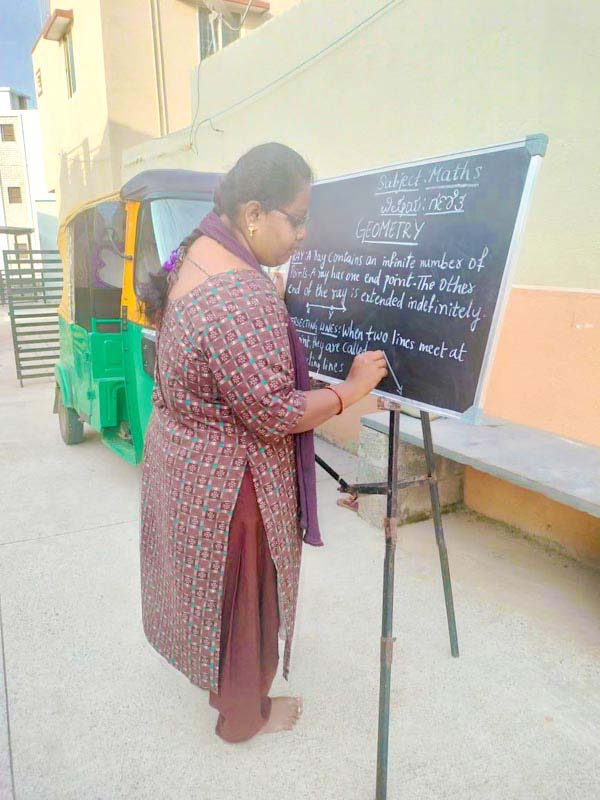 Subject: Maths
ವಿಷಯ: ಗಣಿತ
GEOMETRY
RAY: A Ray contains an infinite number of
Points. A ray has one end point. The other
end of the ray is extended indefinitely.
LINES: When two lines meet at
they are called
lines